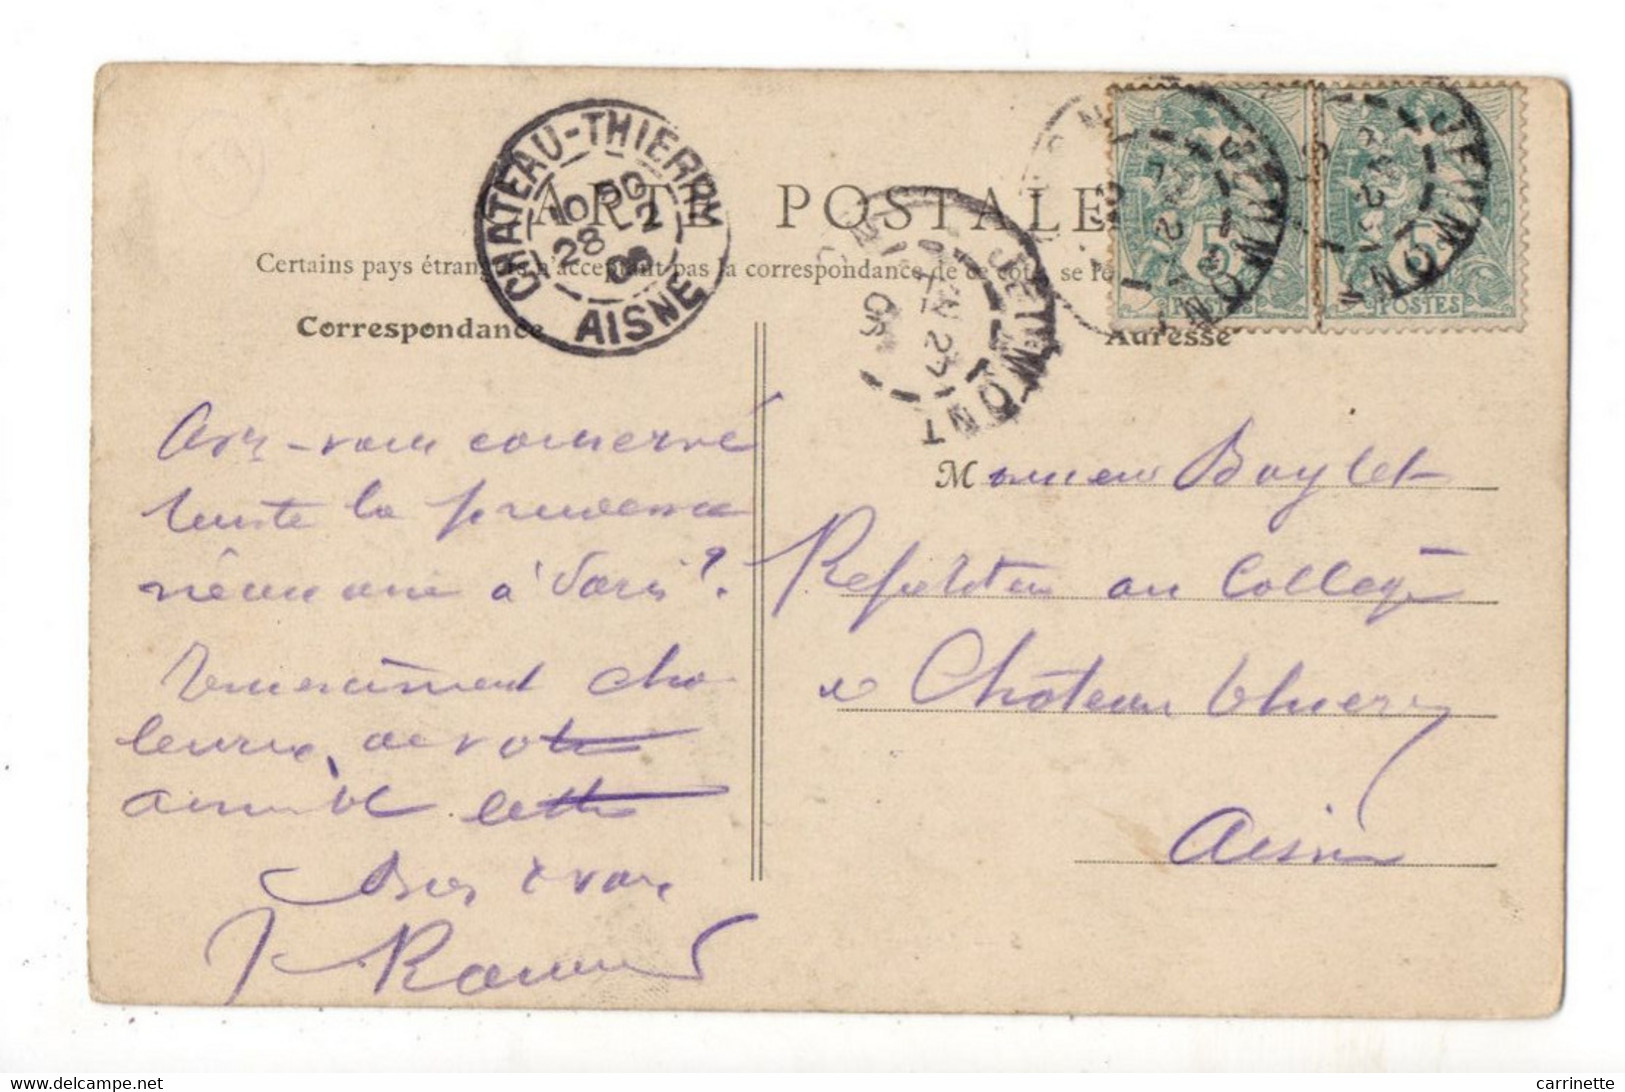 CARTE POSTALE
Certains pays étrangers n'acceptant pas la correspondance de ce côté, se
Correspondance
Adresse
CHATEAU-THIERRY
10 50
28 - 2
08
AISNE
JEUMONT
JEUMONT
JEUMONT
5
POSTES
5
POSTES
Avez-vous conservé
toute la prudence
nécessaire à Paris ?
Remerciement cha
leureux, de votre
aimable lettre
Bien à vous
Monsieur Boylet
Répétiteur au Collège
de Château Thierry
Aisne
carrinette